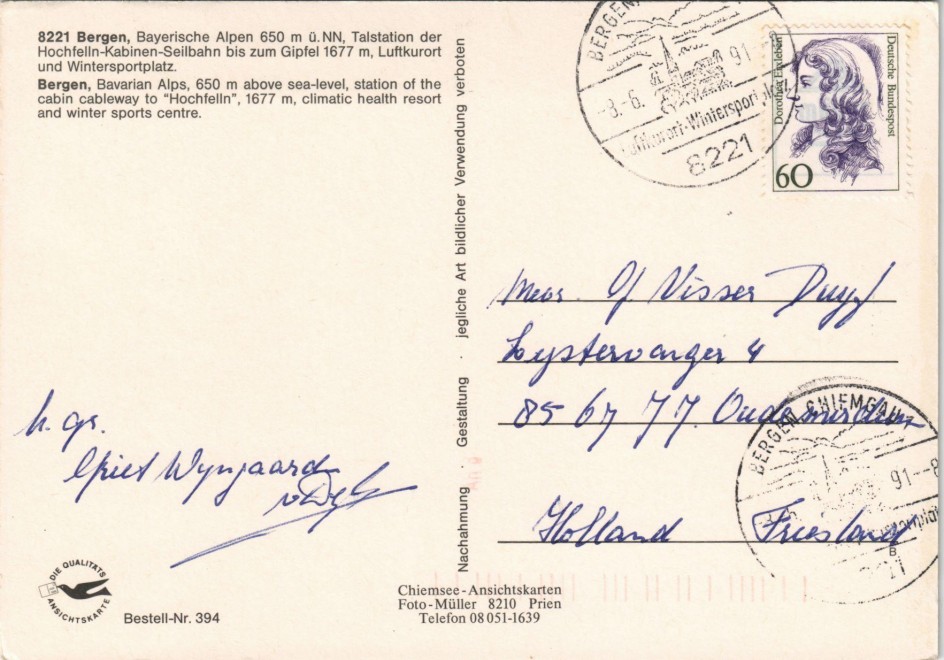 8221 Bergen, Bayerische Alpen 650 m ü.NN, Talstation der
Hochfelln-Kabinen-Seilbahn bis zum Gipfel 1677 m, Luftkurort
und Wintersportplatz.
Bergen, Bavarian Alps, 650 m above sea-level, station of the
cabin cableway to "Hochfelln", 1677 m, climatic health resort
and winter sports centre.
h. gr.
Griet Wyngaard
DIE QUALITÄTS
ANSICHTSKARTE
Bestell-Nr. 394
Nachahmung · Gestaltung · jegliche Art bildlicher Verwendung verboten
Chiemsee-Ansichtskarten
Foto-Müller 8210 Prien
Telefon 08051-1639
BERGEN
-8.-6. 91
Luftkurort-Wintersportplatz
8221
Dorothea Erxleben
Deutsche Bundespost
60
Mevr. G Visser Duyf
Lystervanger 4
8567 77. Oudemirdum
Holland Friesland
BERGEN, CHIEMGAU
91-8
B